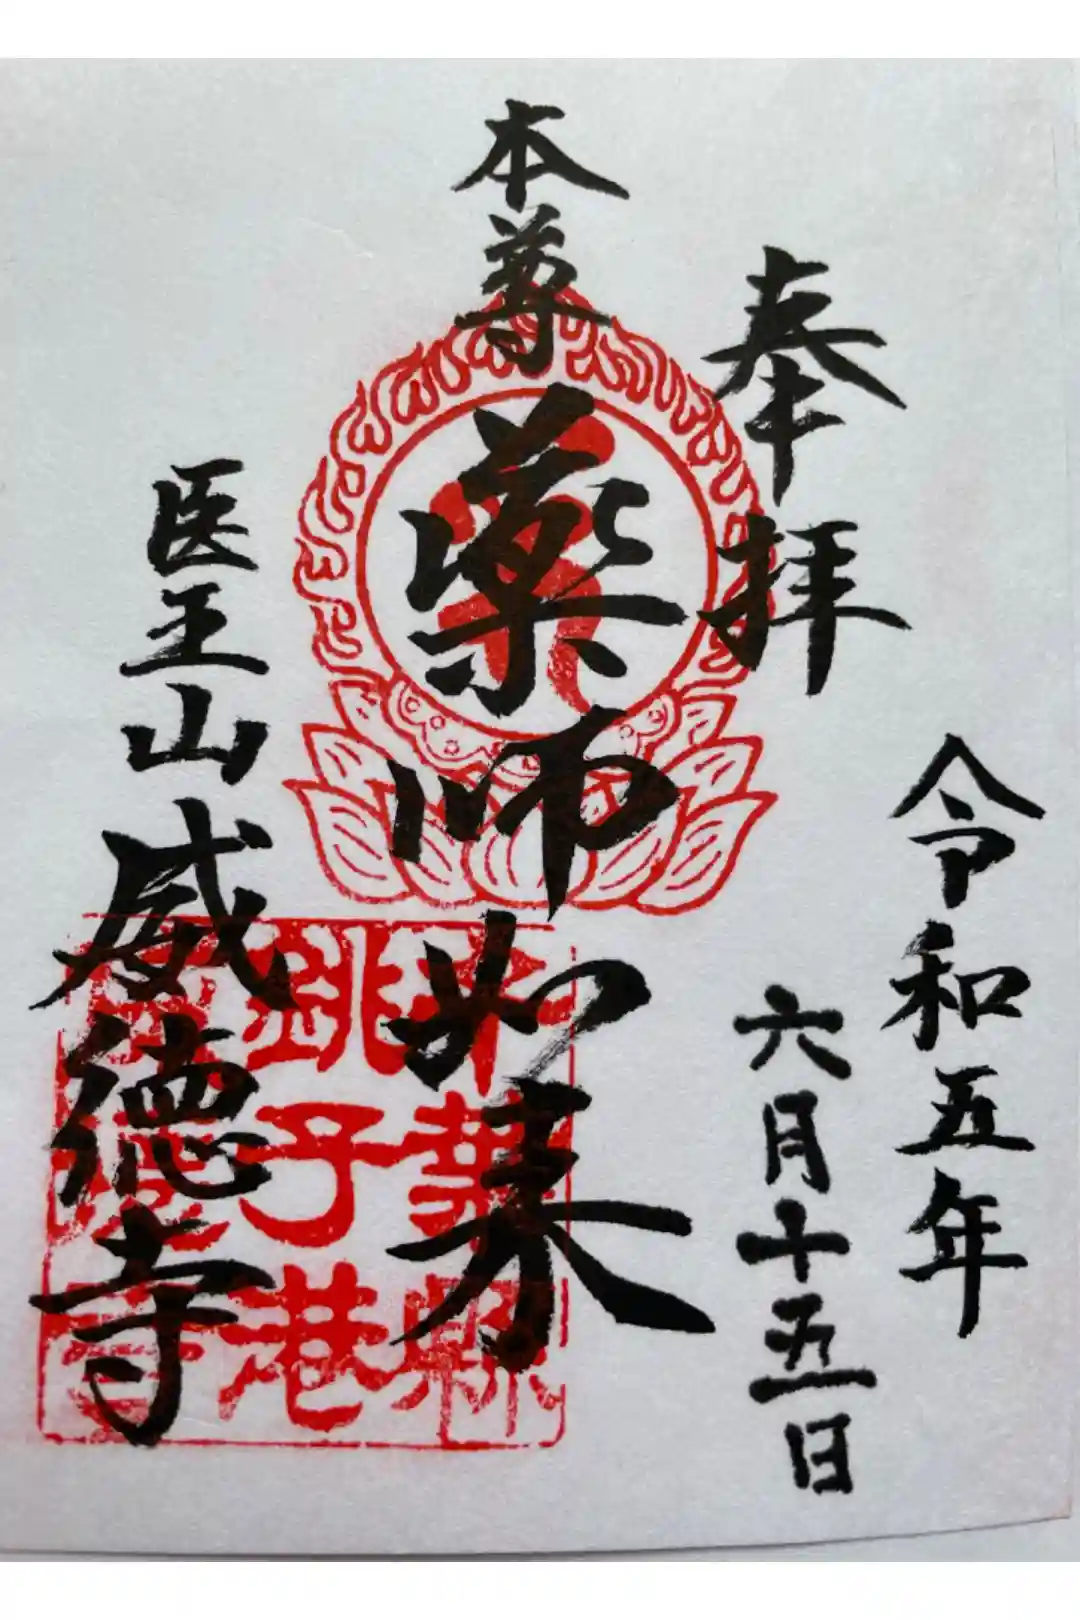 奉拝
令和五年
六月十五日
本尊
薬師如来
医王山威徳寺
千葉縣
銚子港
威徳寺